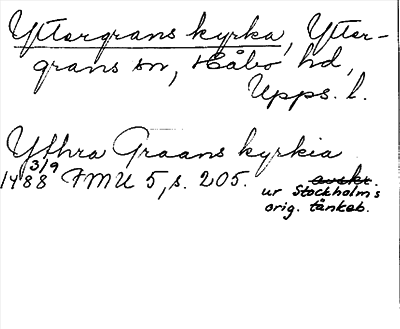 Yttergrans kyrka, Ytter-
grans sn, Håbo hd,
Upps. l.
Ythra Graans kyrkia
3/9
1488 FMU 5, s. 205. avskr.
ur Stockholms
orig. tänkeb.